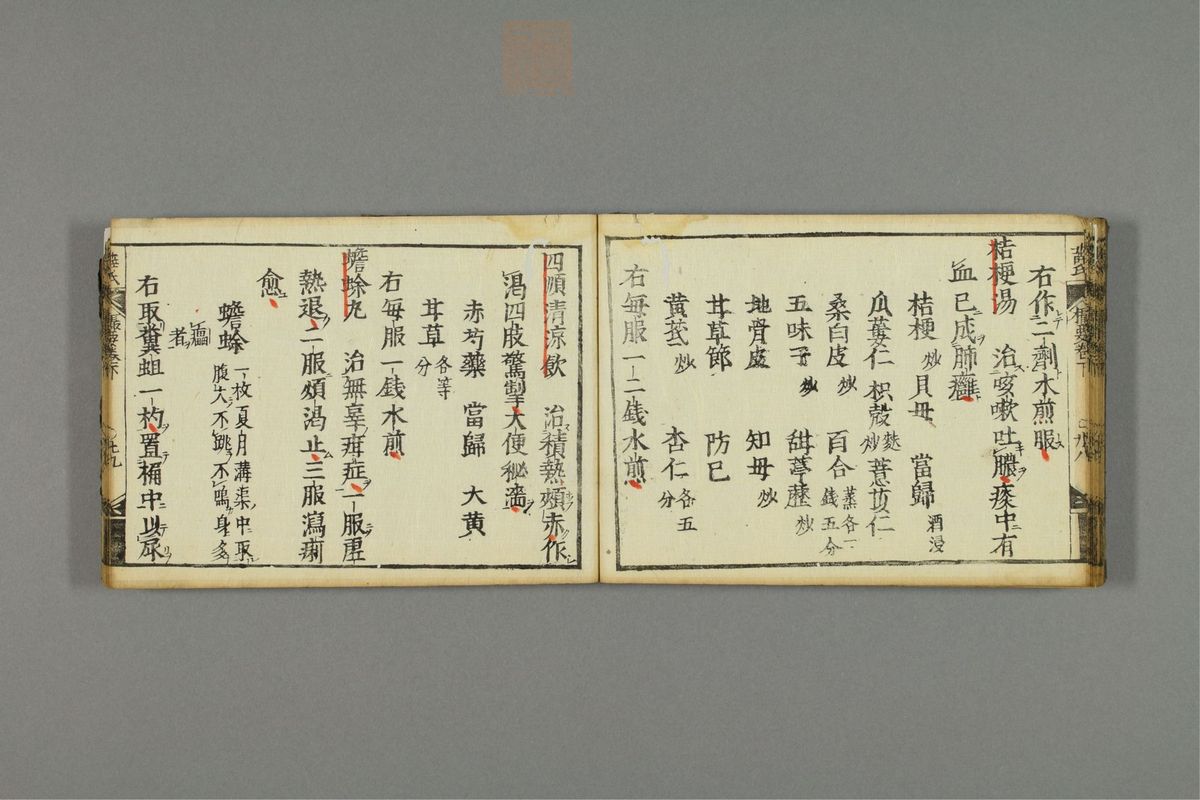 右作二劑水煎服
桔梗湯 治咳嗽吐膿痰中有
血已成肺癰
桔梗炒 貝母 當歸酒浸
瓜蔞仁 枳殼麩炒 薏苡仁
桑白皮炒 百合蒸各一錢五分
五味子炒 甜葶藶炒
地骨皮 知母炒
甘草節 防已
黃芪炒 杏仁各五分
右每服一二錢水煎
四順清涼飲 治積熱頰赤作
渴四肢驚掣大便秘澁
赤芍藥 當歸 大黃
甘草各等分
右每服一錢水煎
蟾蜍丸 治無辜疳症一服虛
熱退二服煩渴止三服瀉痢
愈
蟾蜍一枚夏月溝渠中取腹大不跳不鳴身多㿔者
右取糞蛆一杓置桶中以尿